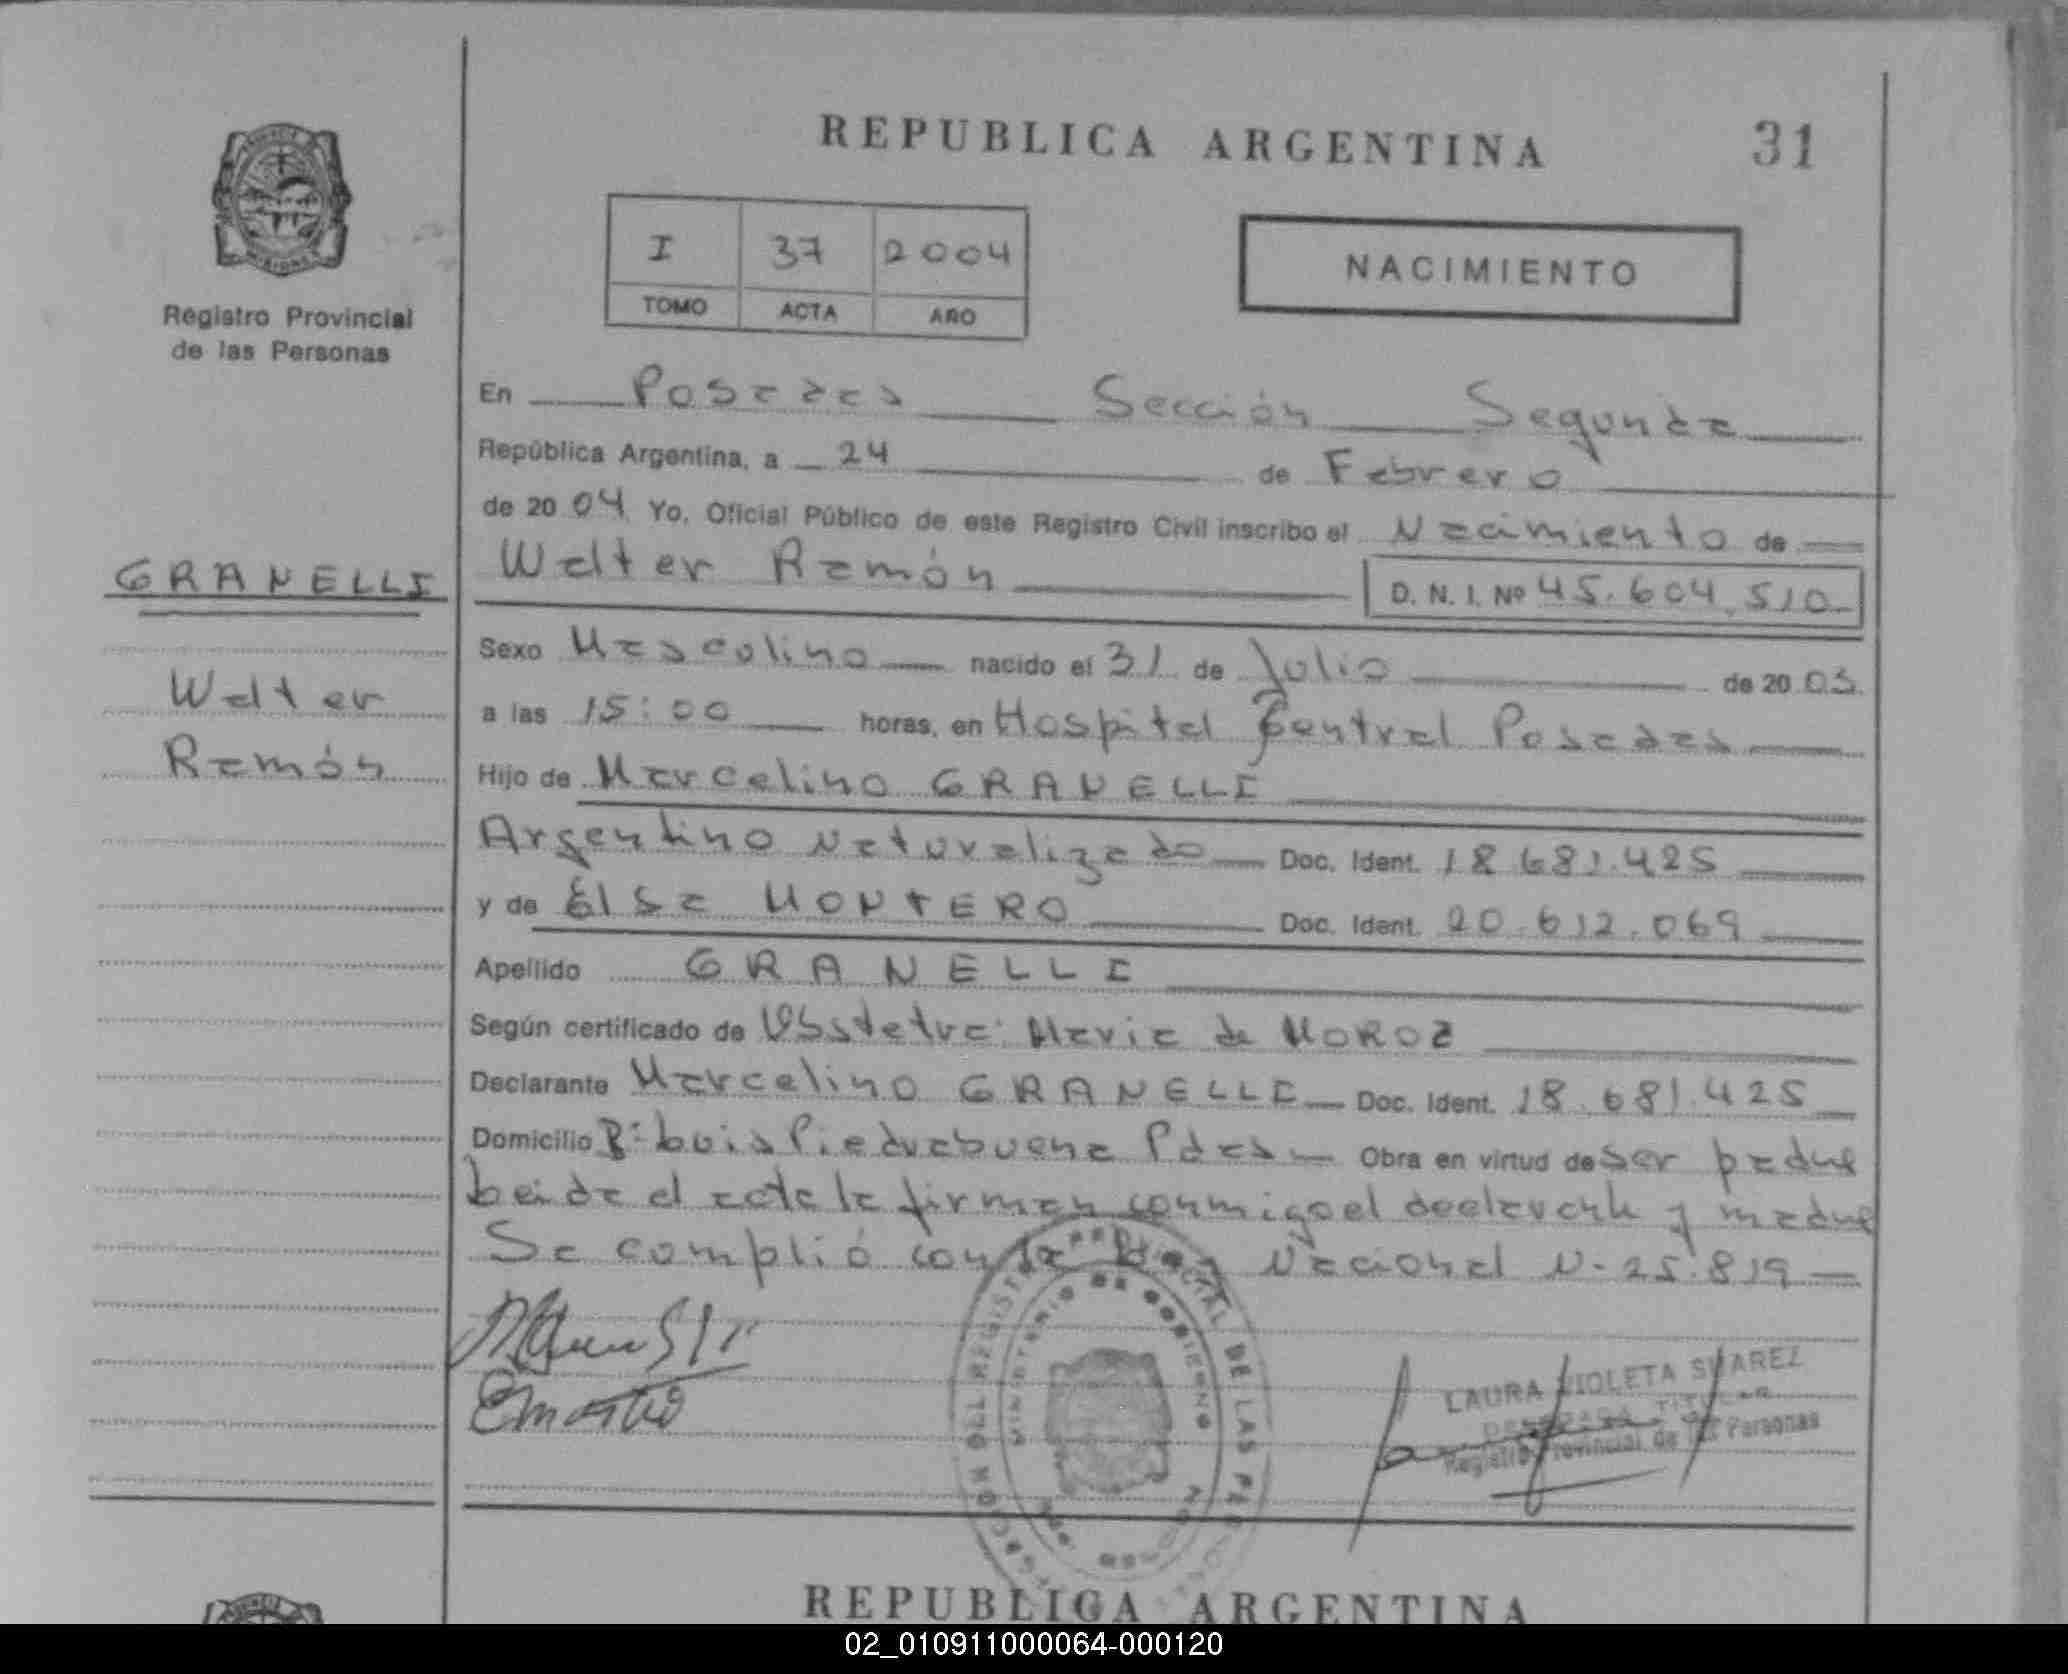 REPUBLICA ARGENTINA 31
I 37 2004
TOMO ACTA AÑO
NACIMIENTO
MISIONES
Registro Provincial
de las Personas
GRANELLI
Walter
Ramón
En Posadas Sección Segunda
República Argentina, a 24 de Febrero
de 2004 Yo, Oficial Público de este Registro Civil inscribo el Nacimiento de
Walter Ramón D. N. I. Nº 45.604.510
Sexo Masculino nacido el 31 de Julio de 2003
a las 15:00 horas, en Hospital Central Posadas
Hijo de Marcelino GRANELLI
Argentino Naturalizado Doc. Ident. 18.681.425
y de Elsa MONTERO Doc. Ident. 20.612.069
Apellido GRANELLI
Según certificado de Obstetra: Maria de MOROZ
Declarante Marcelino GRANELLI Doc. Ident. 18.681.425
Domicilio Bº Luis Piedrabuena Pdas Obra en virtud de ser padre
Leida el acta la firman conmigo el declarante y madre
Se complió con la Ley Nacional N- 25.819
REGISTRO PROVINCIAL DE LAS PERSONAS
MINISTERIO DE GOBIERNO
LAURA VIOLETA SUAREZ
TITULAR
Registro Provincial de las Personas
REPUBLICA ARGENTINA
02_010911000064-000120